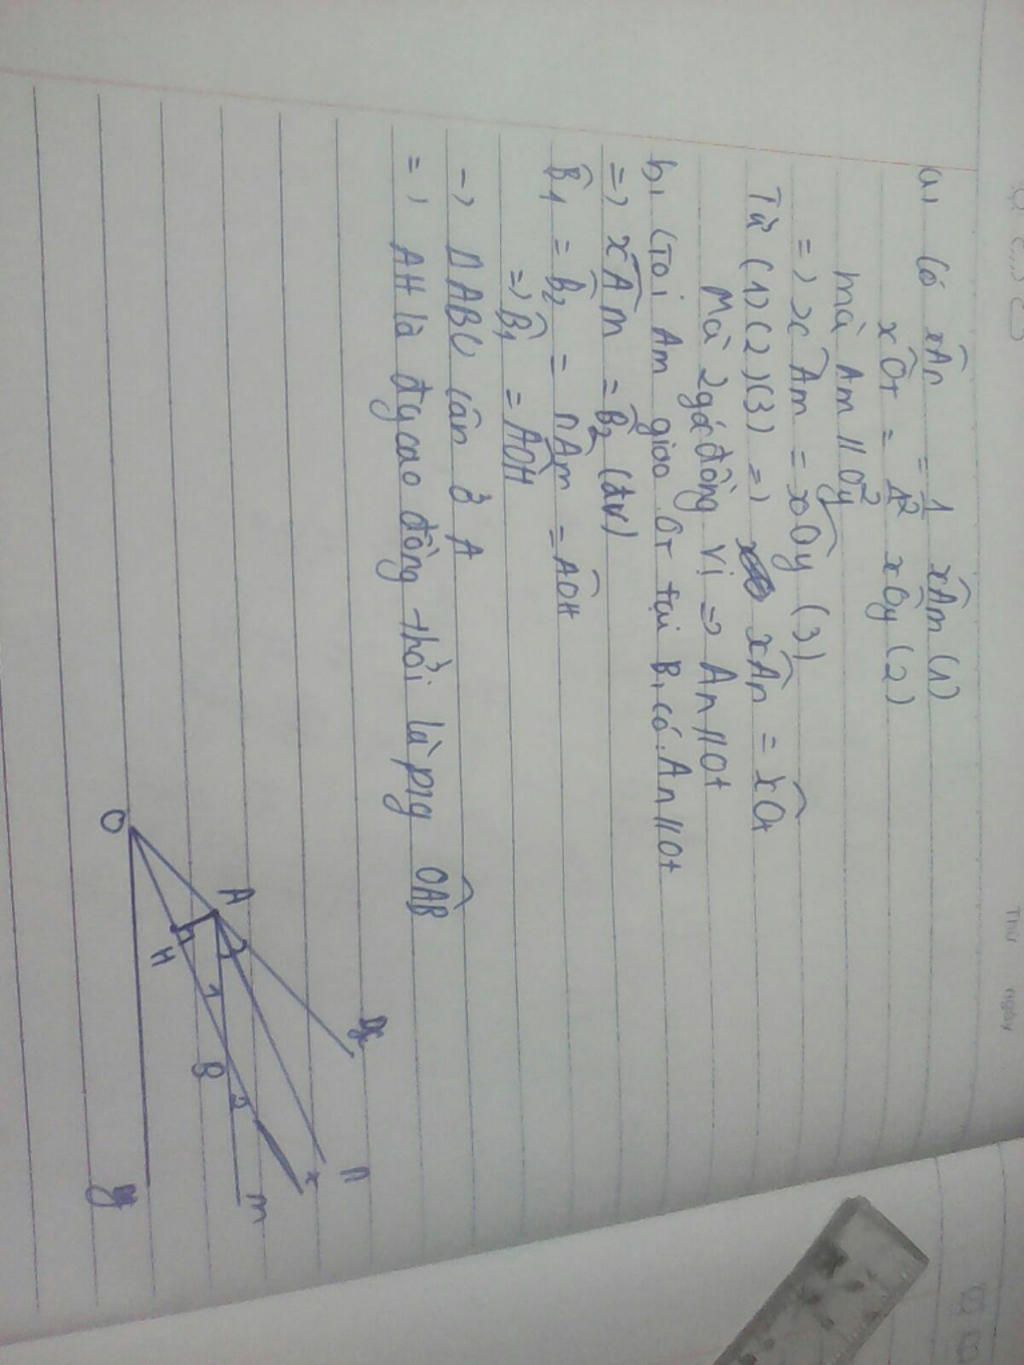 a, Có xÂn = 1/2 xÂm (1)
xÔt = 1/2 xÔy (2)
mà Am // Oy
=> xÂm = xÔy (3)
Từ (1)(2)(3) => xÂn = xÔt
Mà 2 góc đồng vị => An // Ot
b, Gọi Am giao Ot tại B, có An // Ot
=> xÂm = B̂2 (đv)
B̂1 = B̂2 = nÂm = AÔH
=> B̂1 = AÔH
-> ΔABO cân ở A
=> AH là đg cao đồng thời là p/g OÂB
O
A
H
1
B
2
x
n
m
y
Thứ ngày